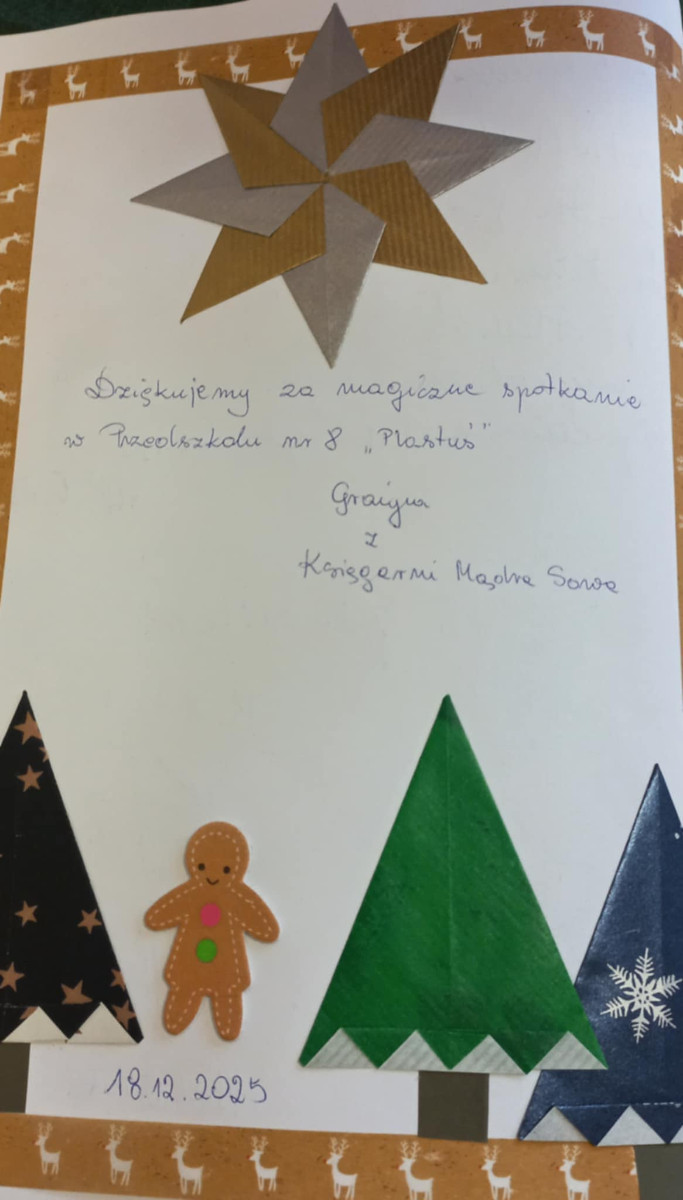 Dziękujemy za magiczne spotkanie
w Przedszkolu nr 8 „Plastuś”
Grażyna
z
Księgarni Mądra Sowa
18.12.2025